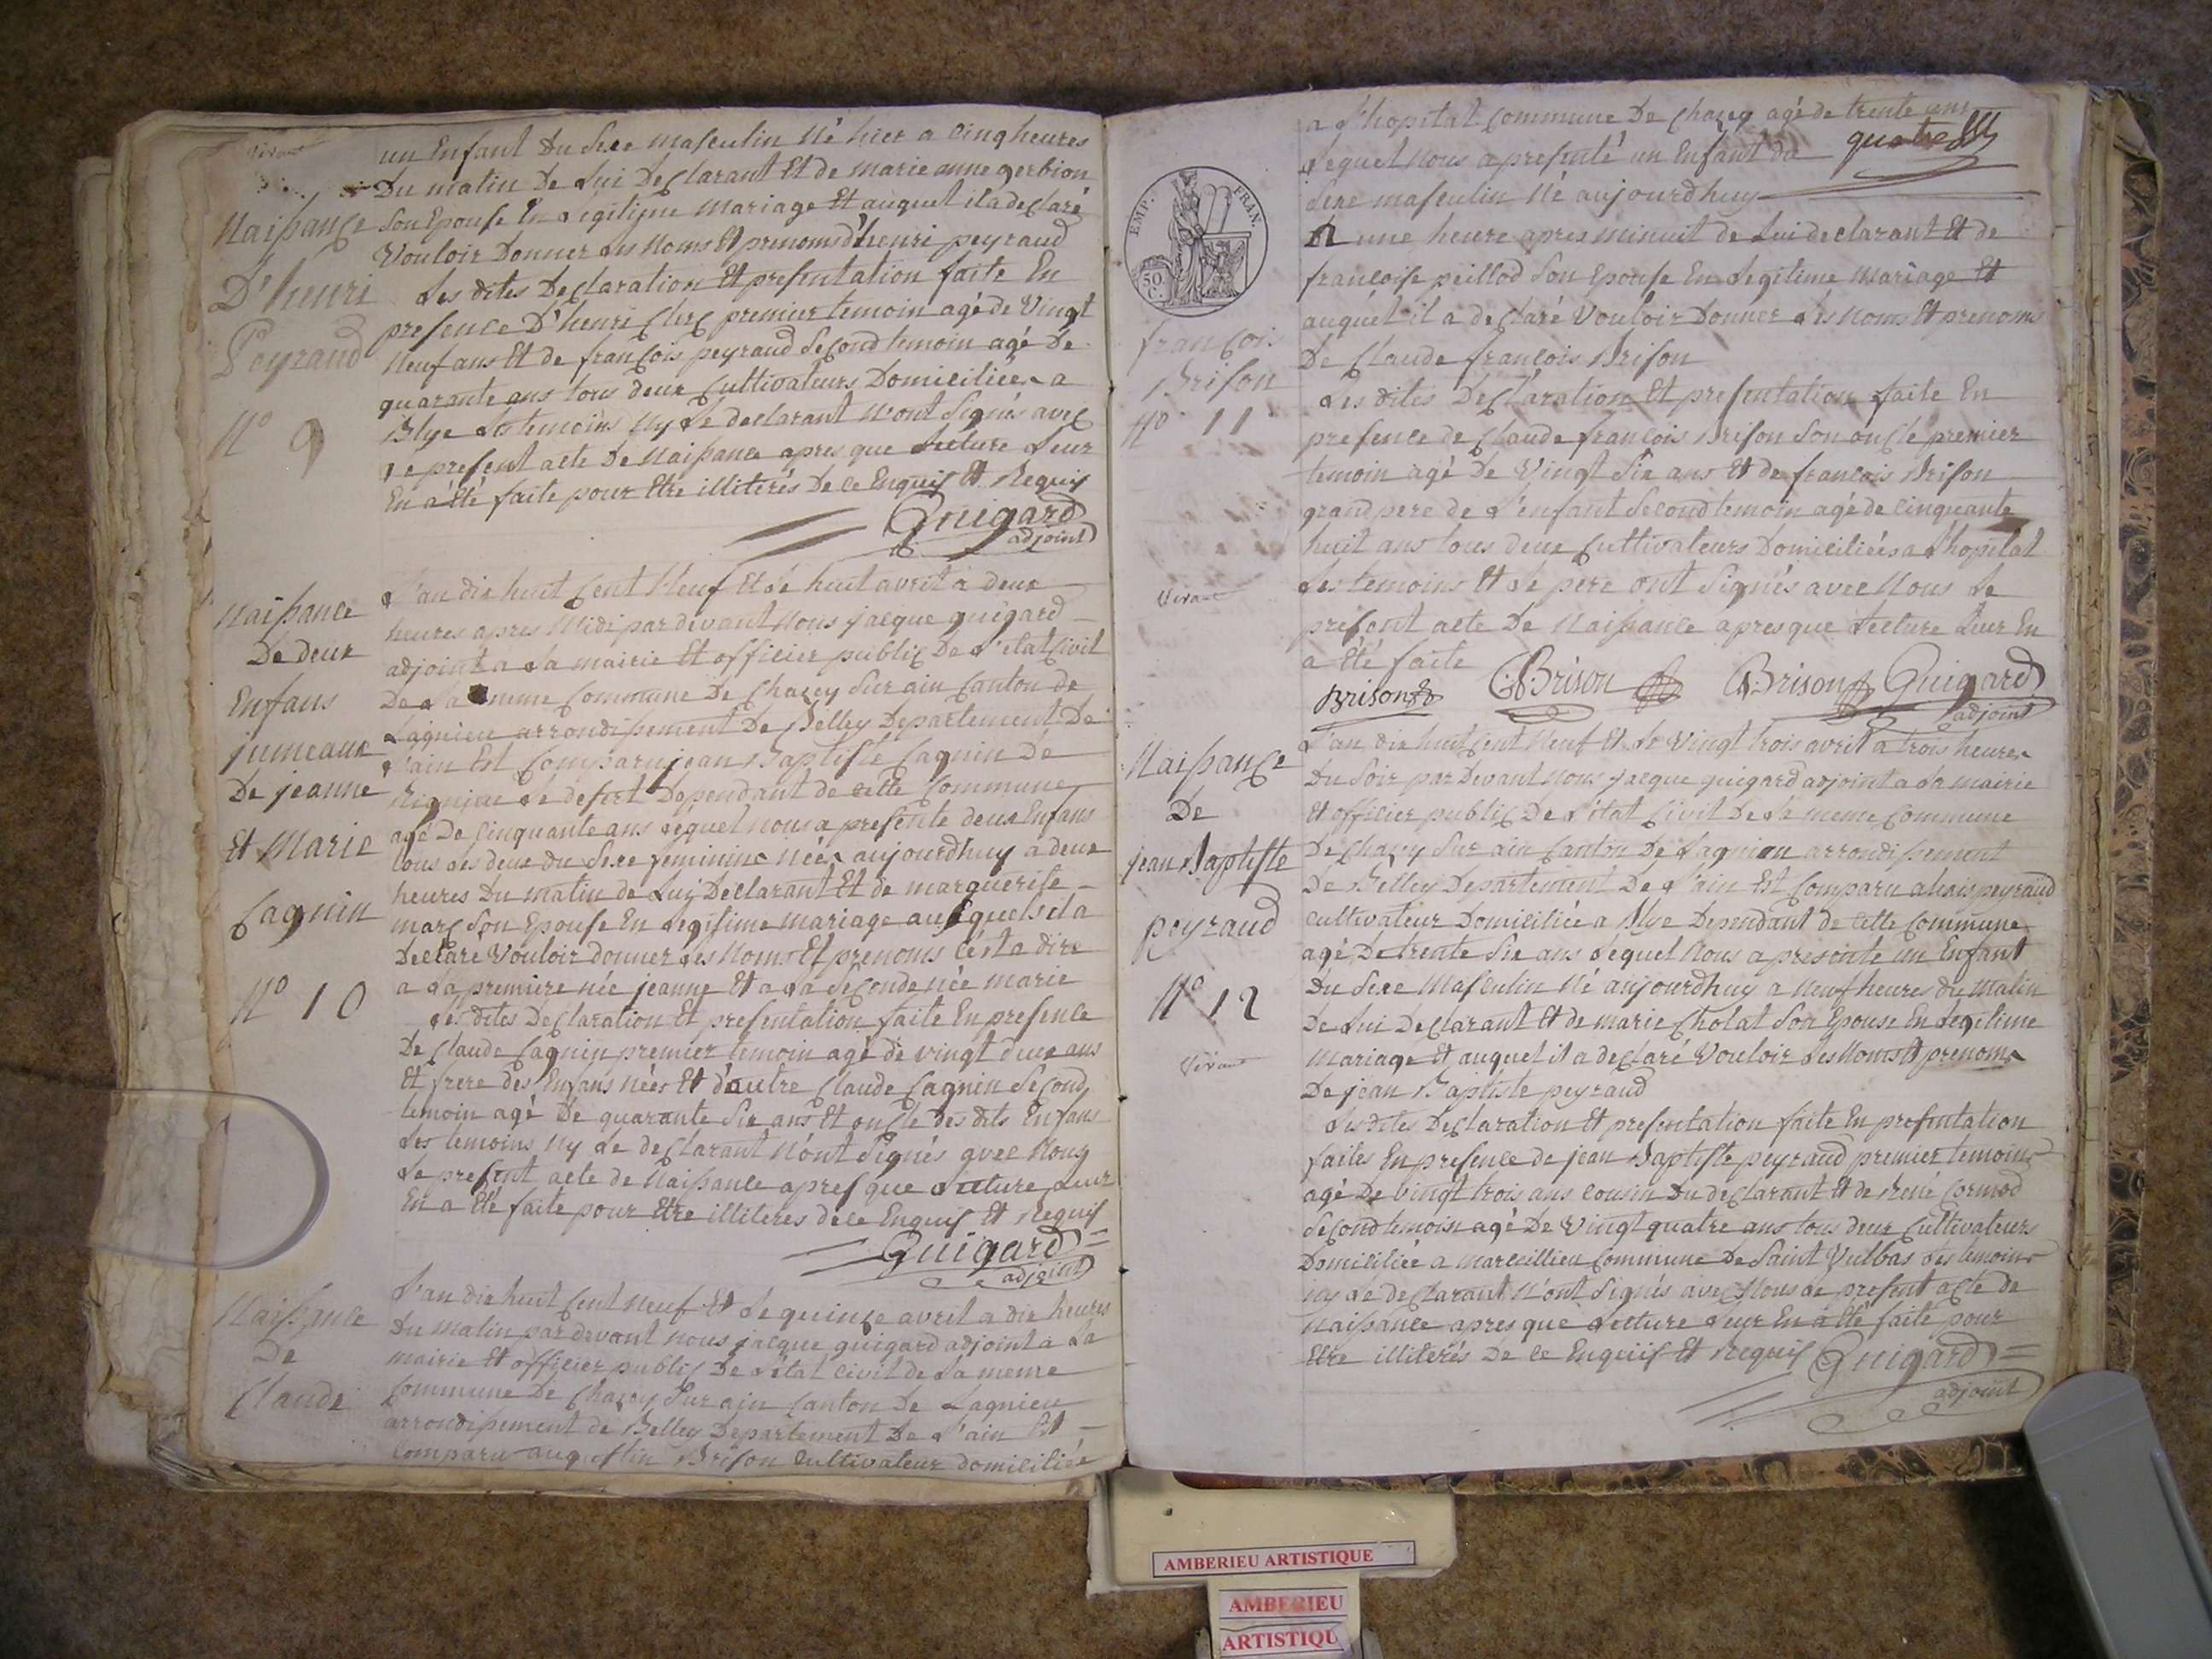 Vivant
un Enfant Du Sexe masculin Né hier a cinq heures
Du matin De Lui Declarant Et de marie anne gerbion
Son Epouse En Legitime Mariage Et auquel il a declaré
Vouloir Donner Les Noms Et prenoms d'henri peyraud
Les dites Declaration Et presentation faite En
presence D'henri Clerc premier temoin agé de Vingt
Neuf ans Et de françois peyraud Second temoin agé De
quarante ans tous deux Cultivateurs Domiciliées a
Blye Les temoins Ny Le declarant N'ont Signés avec
Le present acte De Naissance apres que Lecture Leur
En a Eté faite pour Etre illiterés De ce Enquis Et Requis
Guigard
adjoint
Naissance
D'henri
Peyraud
N° 9
L'an dix huit Cent Neuf Et Le huit avril a deux
heures apres Midi par devant Nous jacque guigard
adjoint a La mairie Et officier public De L'etat Civil
De La meme Commune De Chazey Sur ain Canton de
Lagnieu arrondissement De Belley Departement De
L'ain Est Comparu jean Baptiste Cagnin De
Rignieu Le desert Dependant de cette Commune
agé De Cinquante ans Lequel nous a presente deux Enfans
tous Les deux du Sexe feminine Nées aujourdhuy a deux
heures Du matin de Lui Declarant Et de marguerite
marc Son Epouse En Legitime mariage auxquels il a
Declaré Vouloir donner Les Noms Et prenoms C'est a dire
a La premiere née jeanne Et a La Seconde née marie
Les dites Declaration Et presentation faite En presence
De Claude Cagnin premier temoin agé de vingt deux ans
Et frere des Enfans nées Et d'autre Claude Cagnin Second
temoin agé De quarante Six ans Et oncle des dits Enfans
Les temoins Ny Le declarant N'ont Signés avec Nous
Le present acte de Naissance apres que Lecture Leur
En a Eté faite pour Etre illiteres de ce Enquis Et Requis
Guigard
adjoint
Naissance
De deux
Enfans
jumeaux
De jeanne
Et Marie
Cagnin
N° 10
L'an dix huit Cent Neuf Et Le quinze avril a dix heures
Du matin par devant nous jacque guigard adjoint a La
mairie Et officier public De L'état civil de La meme
Commune De Chazey Sur ain Canton De Lagnieu
arrondissement de Belley Departement De L'ain Est
Comparu augustin Brison Cultivateur domicilié
Naissance
De
Claude
a L'hopital Commune De Chazey agé de trente ans
quatre
Lequel Nous a presenté un Enfant du
Sexe masculin Né aujourdhuy
a une heure apres minuit de Lui declarant Et de
françoise peillod Son Epouse En Legitime Mariage Et
auquel il a declaré Vouloir Donner Les Noms Et prenoms
De Claude françois Brison
Les dites Declaration Et presentation faite En
presence de Claude françois Brison Son oncle premier
temoin agé De Vingt Six ans Et de françois Brison
grand pere de L'enfant Second temoin agé de Cinquante
huit ans tous deux Cultivateurs Domiciliées a L'hopital
Les temoins Et Le pere ont Signés avec Nous Le
present acte De Naissance apres que Lecture Leur En
a Eté faite
Brison
Brison
Brison
Guigard
adjoint
EMP. FRAN.
50 C.
françois
Brison
N° 11
Vivant
L'an dix huit Cent Neuf Et Le Vingt trois avril a trois heures
Du Soir par Devant Nous jacque guigard adjoint a La mairie
Et officier public De L'état Civil De La meme Commune
De Chazey Sur ain Canton De Lagnieu arrondissement
De Belley Departement De L'ain Est Comparu peyraud
Cultivateur Domiciliée a Blye Dependant de Cette Commune
agé De trente Six ans Lequel Nous a presenté un Enfant
Du Sexe Masculin Né aujourdhuy a Neuf heures du Matin
De Lui Declarant Et de marie Cholat Son Epouse En Legitime
Mariage Et auquel il a declaré Vouloir Les Noms Et prenoms
De jean Baptiste peyraud
Les dites Declaration Et presentation faite En presentation
faites En presence de jean Baptiste peyraud premier temoins
agé De vingt trois ans cousin Du declarant Et de René Cormod
Second temoin agé De Vingt quatre ans tous deux Cultivateurs
Domiciliée a marcillieu Commune De Saint Vulbas Les temoins
ny Le declarant N'ont Signés avec Nous Le present acte de
Naissance apres que Lecture Leur En a Eté faite pour
Etre illiterés De ce Enquis Et Requis
Guigard
adjoint
Naissance
De
jean Baptiste
peyraud
N° 12
Vivant
AMBERIEU ARTISTIQUE
AMBERIEU
ARTISTIQU